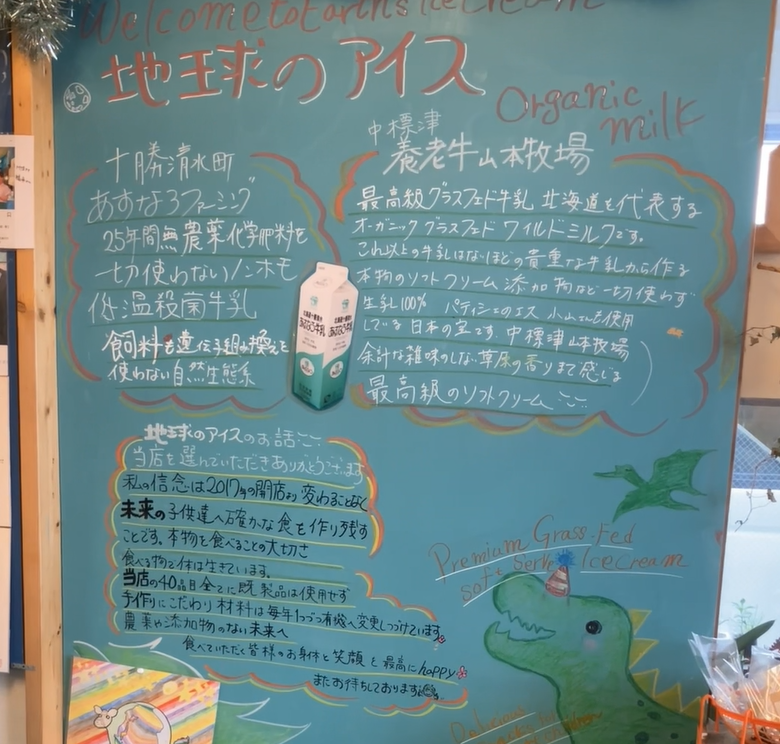 Welcome to Earth's Ice Cream
地球のアイス
Organic
milk
十勝清水町
あすなろファーミング
25年間無農薬化学肥料を
一切使わないノンホモ
低温殺菌牛乳
飼料も遺伝子組み換えを
使わない自然生態系
中標津
養老牛山本牧場
最高級グラスフェド牛乳 北海道を代表する
オーガニックグラスフェド ワイルドミルクです。
これ以上の牛乳はないほどの貴重な牛乳から作る
本物のソフトクリーム 添加物など一切使わず
生乳100% パティシエのエス 小山さんも使用
している 日本の宝です 中標津山本牧場
余計な雑味のしない草原の香りまで感じる
最高級のソフトクリーム
あすなろ牛乳
地球のアイスのお話
当店を選んでいただきありがとうございます
私の信念は2017年の開店より変わることなく
未来の子供達へ確かな食を作り残す
ことです。本物を食べることの大切さ
食べる物で体は生きています。
当店の40品目全てに既製品は使用せず
手作りにこだわり材料は毎年1つづつ有機へ変更しつづけています。
農薬や添加物のない未来へ
食べていただく皆様のお身体と笑顔を最高にhappy
またお待ちしております
Premium Grass-Fed
soft serve Ice Cream
Delicious